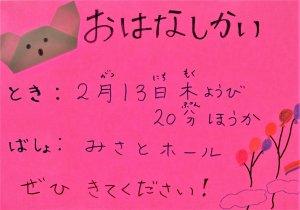 おはなしかい
とき：2月13日木ようび
20分ほうか
ばしょ：みさとホール
ぜひ きてください！